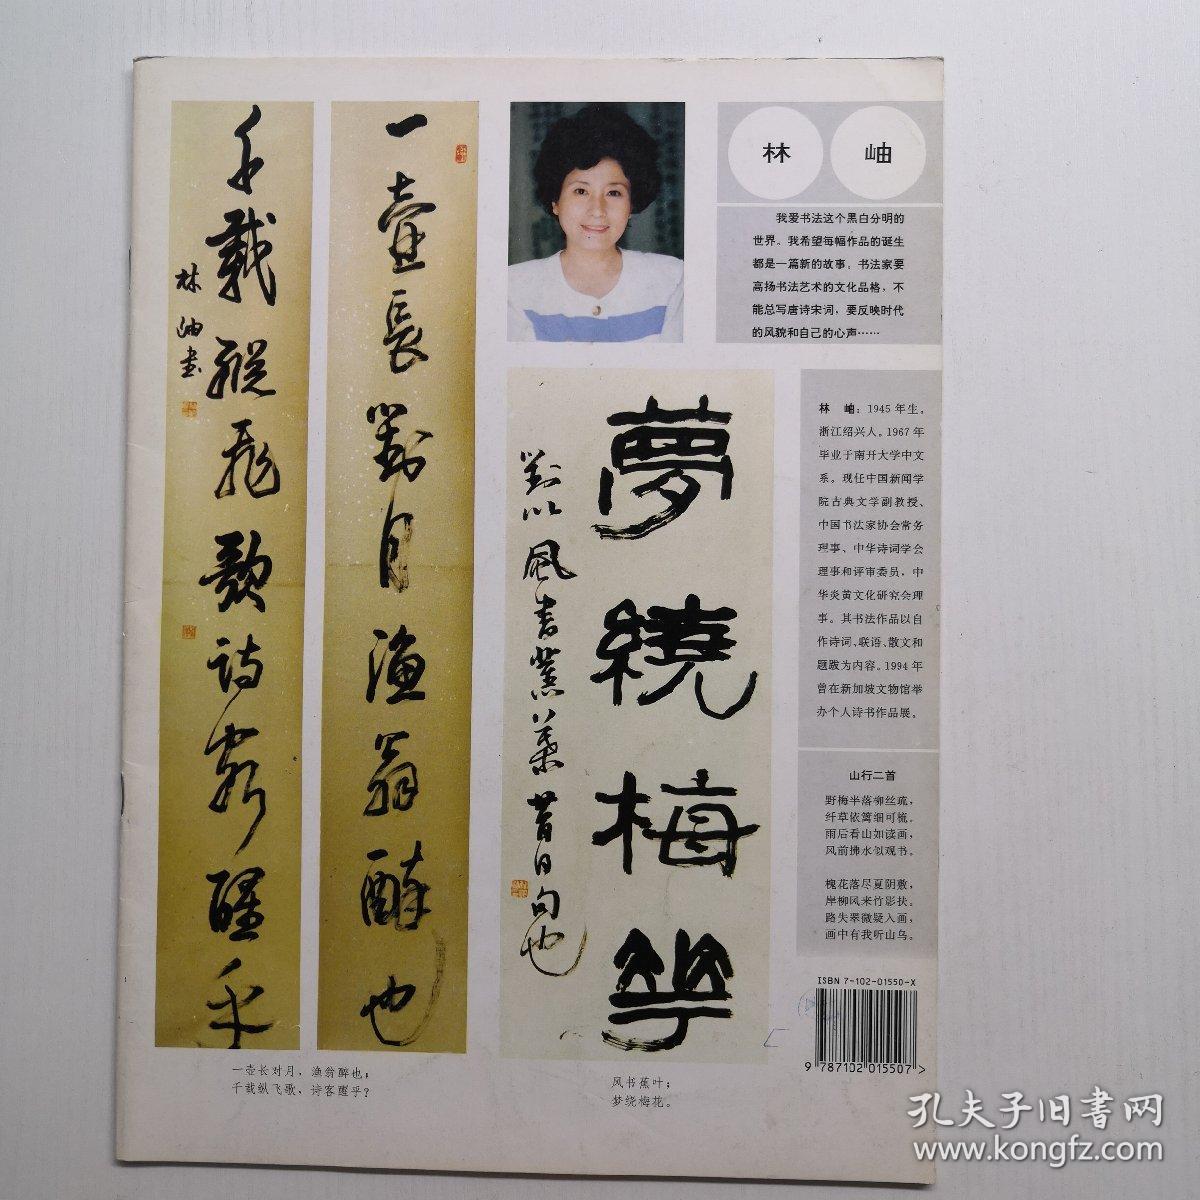 林 岫
我爱书法这个黑白分明的
世界。我希望每幅作品的诞生
都是一篇新的故事。书法家要
高扬书法艺术的文化品格，不
能总写唐诗宋词，要反映时代
的风貌和自己的心声……
林 岫：1945年生。
浙江绍兴人。1967年
毕业于南开大学中文
系。现任中国新闻学
院古典文学副教授、
中国书法家协会常务
理事、中华诗词学会
理事和评审委员，中
华炎黄文化研究会理
事。其书法作品以自
作诗词、联语、散文和
题跋为内容。1994年
曾在新加坡文物馆举
办个人诗书作品展。
山行二首
野梅半落柳丝疏，
纤草依篱细可梳。
雨后看山如读画，
风前拂水似观书。
槐花落尽夏阴敷，
岸柳风来竹影扶。
路失翠微疑入画，
画中有我听山乌。
一壶长對月漁翁醉也
千载縱飛歌詩客醒乎
林岫書
夢繞梅华
對以風書蕉葉昔日句也
一壶长对月，渔翁醉也；
千载纵飞歌，诗客醒乎？
风书蕉叶；
梦绕梅花。
ISBN 7-102-01550-X
9 787102 015507 >
孔夫子旧书网
www.kongfz.com